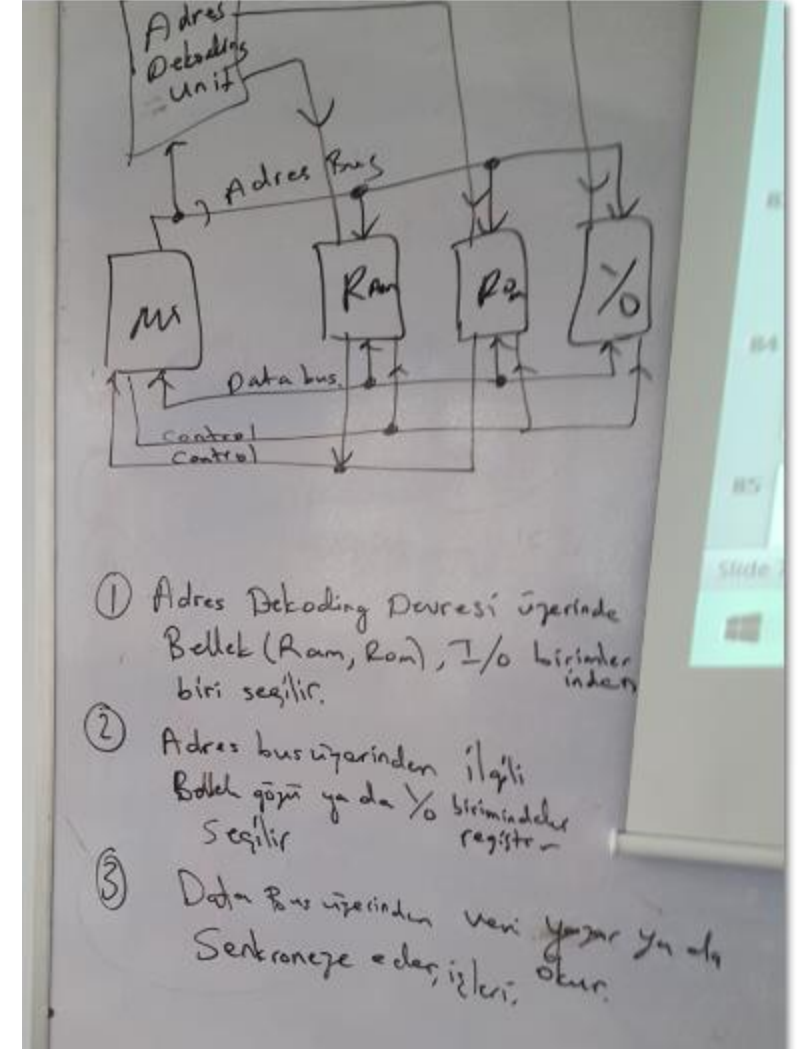 Adres
Dekoding
unit
Adres Bus
Ram
Rom
I/O
Data bus
control
control
① Adres Dekoding Devresi üzerinde
Bellek (Ram, Rom), I/o birimler
inden
biri seçilir.
② Adres bus üzerinden ilgili
Bellek gözü ya da I/o birimindeki
seçilir
③ Data Bus üzerinden veri yazar ya da
okur.
Senkroneze eder,
84
85
Slide